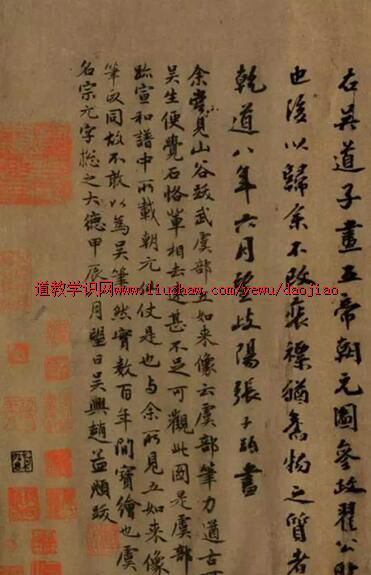 右吳道子畫五帝朝元圖參政翟公貽
也後以歸余不改裝褾猶舊物之質者
乾道八年六月 岐陽張子珉書
余嘗見山谷跋武虞部五如來像云虞部筆力遒古
吳生便覺石恪輩相去遠甚不足可觀此圖是虞部
跡宣和譜中所載朝元仙仗是也与余所見五如來像
筆法同故不敢以爲吳筆然實數百年間寶繪也虞
名宗元字揔之大德甲辰 月望日吳興趙孟頫跋
道教学识网www.liuzhaw.com/yewu/daojiao